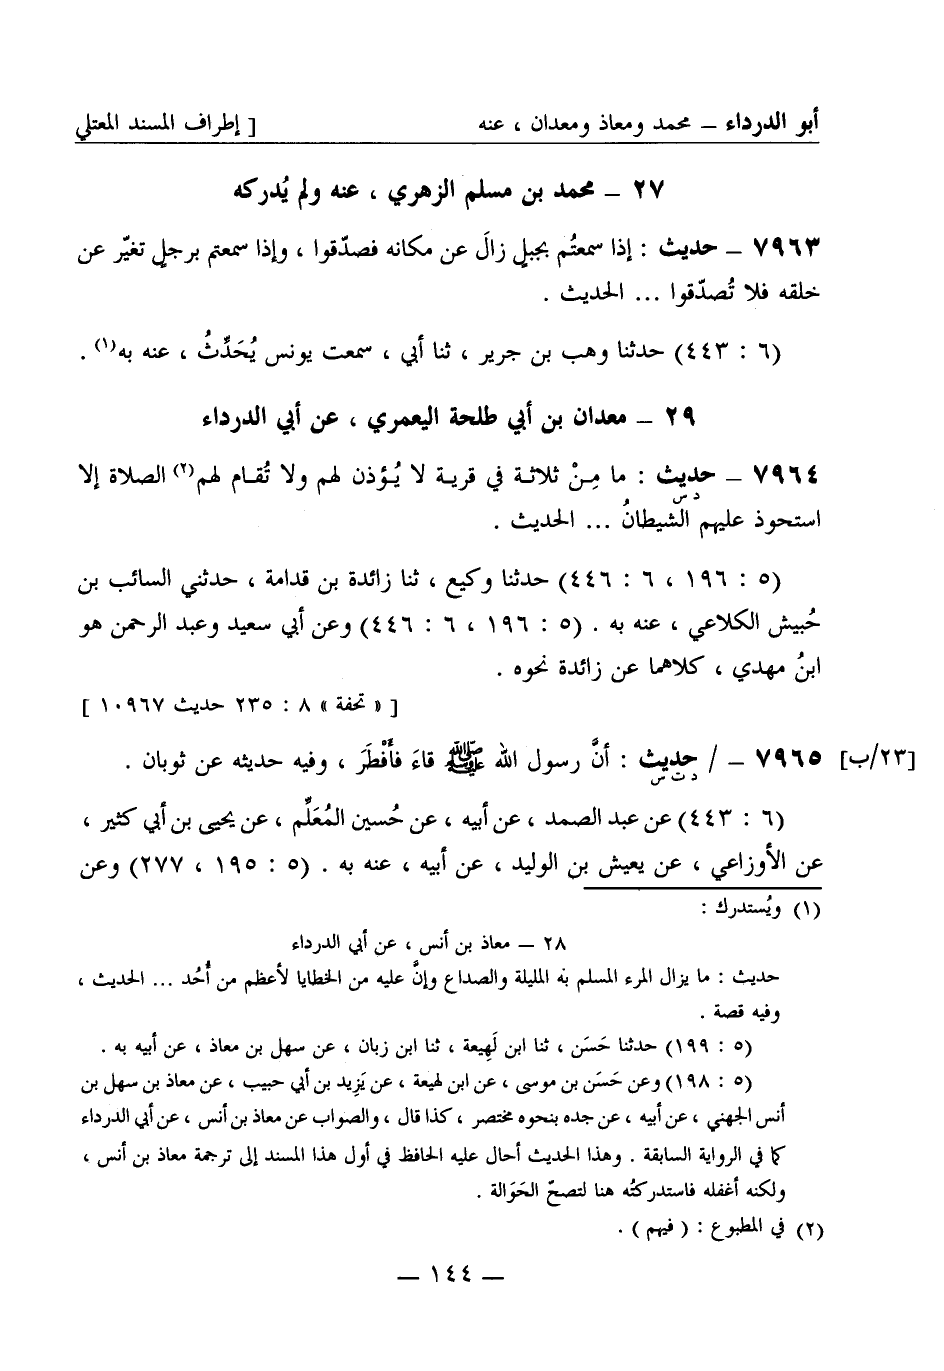 أبو الدرداء – محمد ومعاذ ومعدان ، عنه [ إطراف المسند المعتلي
٢٧ – محمد بن مسلم الزهري ، عنه ولم يُدركه
٧٩٦٣ – حديث : إذا سمعتُم بجبلٍ زالَ عن مكانه فصدّقوا ، وإذا سمعتم برجلٍ تغيّر عن
خلقه فلا تُصدّقوا ... الحديث .
(٦ : ٤٤٣) حدثنا وهب بن جرير ، ثنا أبي ، سمعت يونس يُحَدِّثُ ، عنه به(١) .
٢٩ – معدان بن أبي طلحة اليعمري ، عن أبي الدرداء
٧٩٦٤ – حديث : ما مِنْ ثلاثة في قرية لا يُؤذن لهم ولا تُقام لهم(٢) الصلاة إلا
د س
استحوذ عليهم الشيطانُ ... الحديث .
(٥ : ١٩٦ ، ٦ : ٤٤٦) حدثنا وكيع ، ثنا زائدة بن قدامة ، حدثني السائب بن
حُبيش الكلاعي ، عنه به . (٥ : ١٩٦ ، ٦ : ٤٤٦) وعن أبي سعيد وعبد الرحمن هو
ابنُ مهدي ، كلاهما عن زائدة نحوه .
[ « تحفة » ٨ : ٢٣٥ حديث ١٠٩٦٧ ]
[٢٣/ب] ٧٩٦٥ – / حديث : أنَّ رسول الله ﷺ قاءَ فأَفْطَرَ ، وفيه حديثه عن ثوبان .
د ت س
(٦ : ٤٤٣) عن عبد الصمد ، عن أبيه ، عن حُسين المُعَلِّم ، عن يحيى بن أبي كثير ،
عن الأوزاعي ، عن يعيش بن الوليد ، عن أبيه ، عنه به . (٥ : ١٩٥ ، ٢٧٧) وعن
(١) ويُستدرك :
٢٨ – معاذ بن أنس ، عن أبي الدرداء
حديث : ما يزال المرء المسلم به المليلة والصداع وإنَّ عليه من الخطايا لأعظم من أُحُد ... الحديث ،
وفيه قصة .
(٥ : ١٩٩) حدثنا حَسَن ، ثنا ابن لَهِيعة ، ثنا ابن زبان ، عن سهل بن معاذ ، عن أبيه به .
(٥ : ١٩٨) وعن حَسَن بن موسى ، عن ابن لهيعة ، عن يَزِيد بن أبي حبيب ، عن معاذ بن سهل بن
أنس الجهني ، عن أبيه ، عن جده بنحوه مختصر ، كذا قال ، والصواب عن معاذ بن أنس ، عن أبي الدرداء
كما في الرواية السابقة . وهذا الحديث أحال عليه الحافظ في أول هذا المسند إلى ترجمة معاذ بن أنس ،
ولكنه أغفله فاستدركتُه هنا لتصحّ الحَوَالة .
(٢) في المطبوع : ( فيهم ) .
– ١٤٤ –